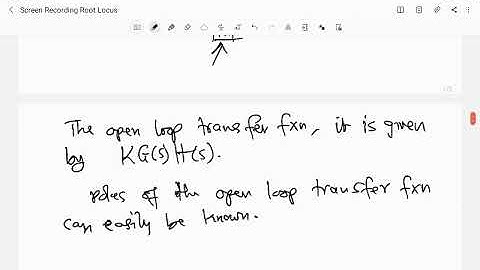 Screen Recording Root Locus
The open loop transfer fxn, it is given
by KG(s)H(s).
poles of the open loop transfer fxn
can easily be known.